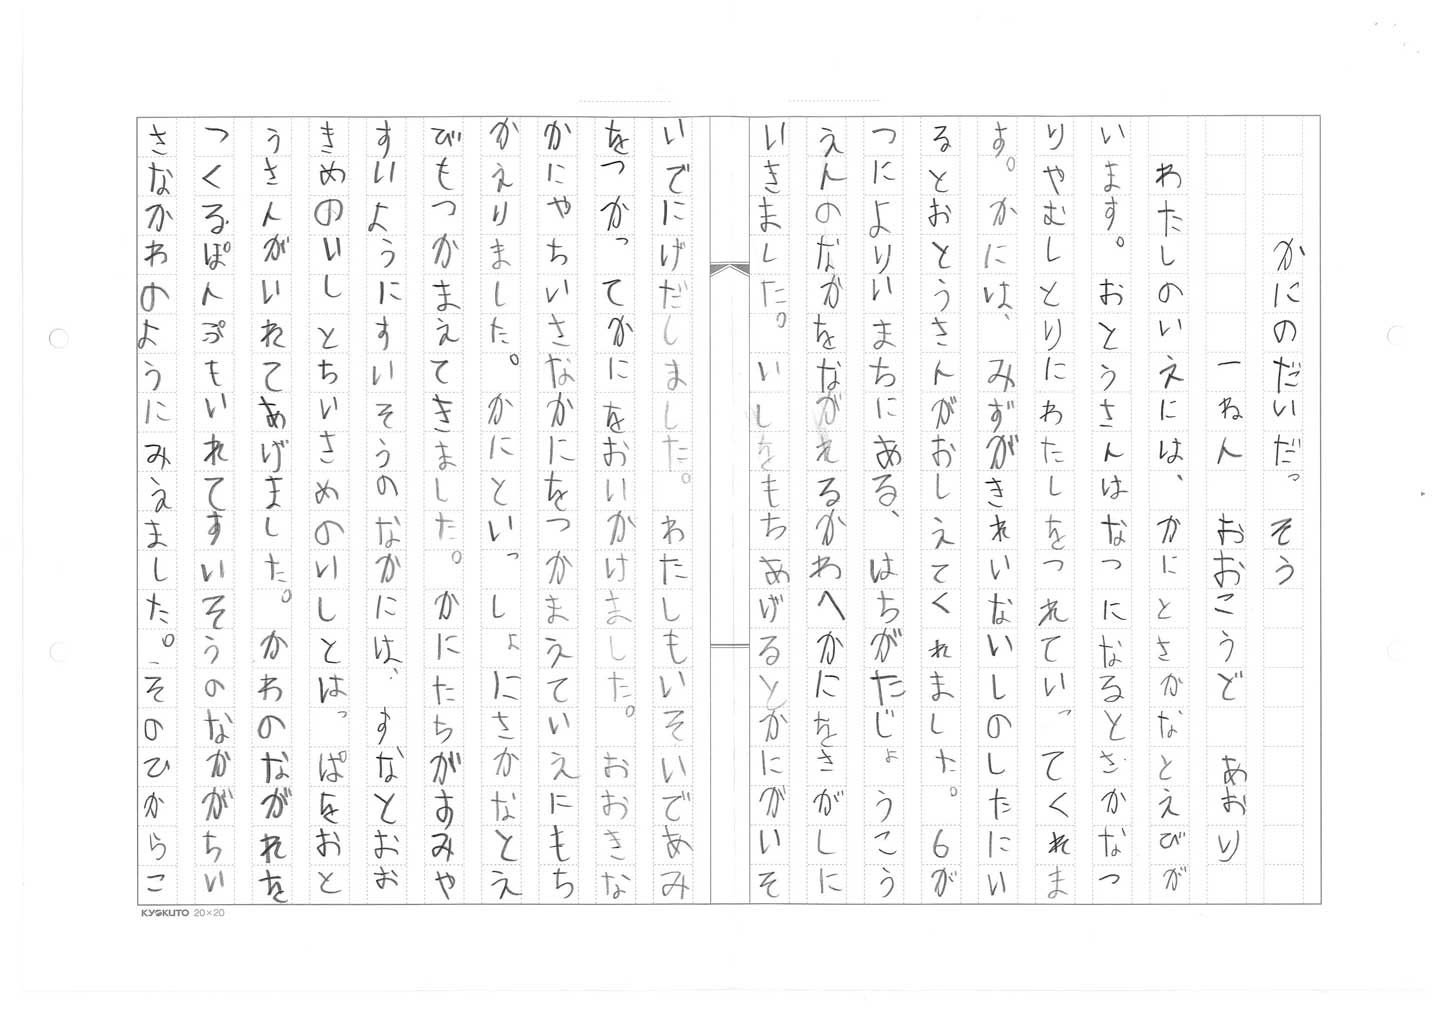 かにのだいだっそう
一ねん おおこうど あおり
わたしのいえには、かにとさかなとえびが
います。おとうさんはなつになるとさかなつ
りやむしとりにわたしをつれていってくれま
す。かには、みずがきれいないしのしたにい
るとおとうさんがおしえてくれました。6が
つによりいまちにある、はちがたじょうこう
えんのなかをながれるかわへかにをさがしに
いきました。いしをもちあげるとかにがいそ
いでにげだしました。わたしもいそいであみ
をつかってかにをおいかけました。おおきな
かにやちいさなかにをつかまえていえにもち
かえりました。かにといっしょにさかなとえ
びもつかまえてきました。かにたちがすみや
すいようにすいそうのなかには、すなとおお
きめのいしとちいさめのいしとはっぱをおと
うさんがいれてあげました。かわのながれを
つくるぽんぷもいれてすいそうのなかがちい
さなかわのようにみえました。そのひからこ
KYOKUTO 20×20